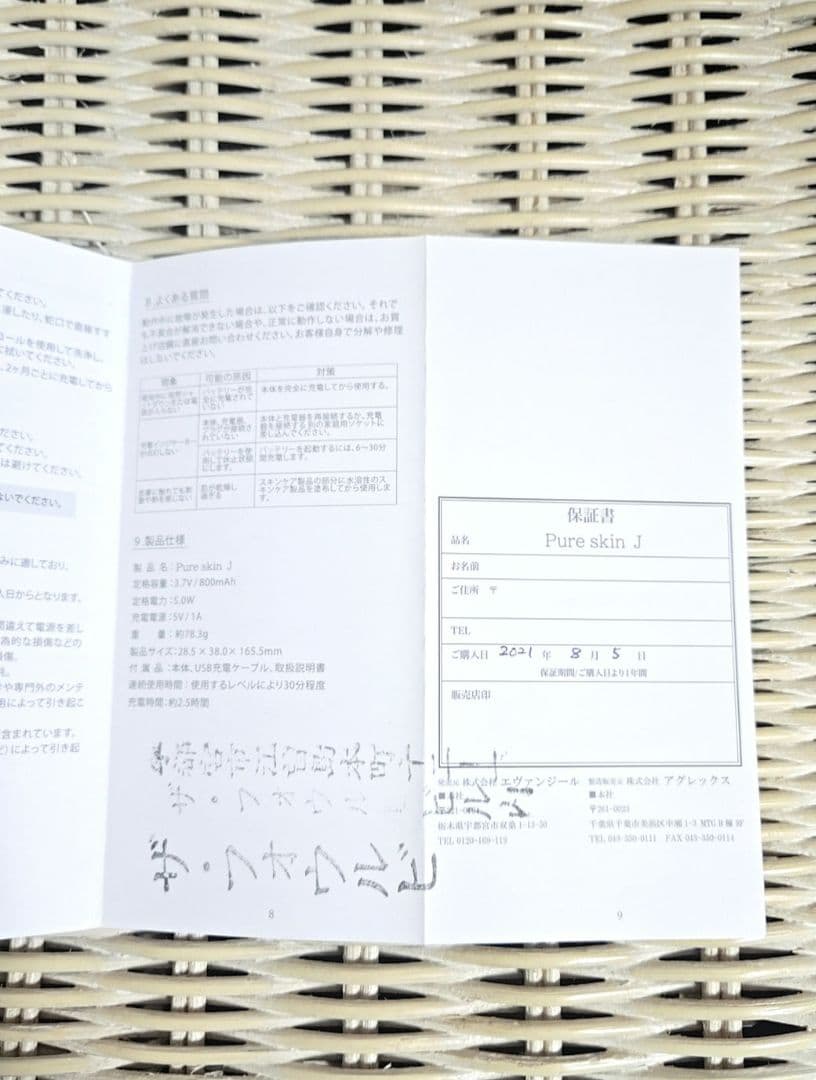 てください。
ールを使用して洗浄し、
拭いてください。
、2ヶ月ごとに充電してから
ださい。
てください。
は避けてください。
ないでください。
みに適しており、
入日からとなります。
間違えて電源を差し
為的な損傷などの
損傷。
や専門外のメンテ
用によって引き起こ
含まれています。
ど)によって引き起
8.よくある質問
動作中に故障が発生した場合は、以下をご確認ください。それで
も不具合が解消できない場合や、正常に動作しない場合は、お買
上げ店舗に直接お問い合わせください。お客様自身で分解や修理
はしないでください。
現象 可能の原因 対策
バッテリーが完
全に充電されて
いない
本体を完全に充電してから使用する。
本体、充電器、
プラグが接続さ
れていない
本体と充電器を再接続するか、充電
器を接続する別の家庭用ソケットに
差し込んでください。
バッテリーを使
用して休止状態
にします。
バッテリーを起動するには、6〜30分
間充電します。
肌が乾燥し
過ぎる
スキンケア製品の部分に水溶性のス
キンケア製品を塗布してから使用しま
す。
9.製品仕様
製品名:Pure skin J
定格容量:3.7V/800mAh
定格電力:5.0W
充電電源:5V/1A
重量:約78.3g
製品サイズ:28.5×38.0×165.5mm
付属品:本体、USB充電ケーブル、取扱説明書
連続使用時間:使用するレベルにより30分程度
充電時間:約2.5時間
ザ・フォウルビ
8
保証書
品名 Pure skin J
お名前
ご住所 〒
TEL
ご購入日 2021 年 8 月 5 日
保証期間/ご購入日より1年間
販売店印
発売元 株式会社 エヴァンジール
栃木県宇都宮市双葉1-13-50
TEL 0120-109-119
製造販売元 株式会社 アグレックス
■本社
〒261-0023
千葉県千葉市美浜区中瀬1-3 MTG B棟9F
TEL 043-350-0111 FAX 043-350-0114
9